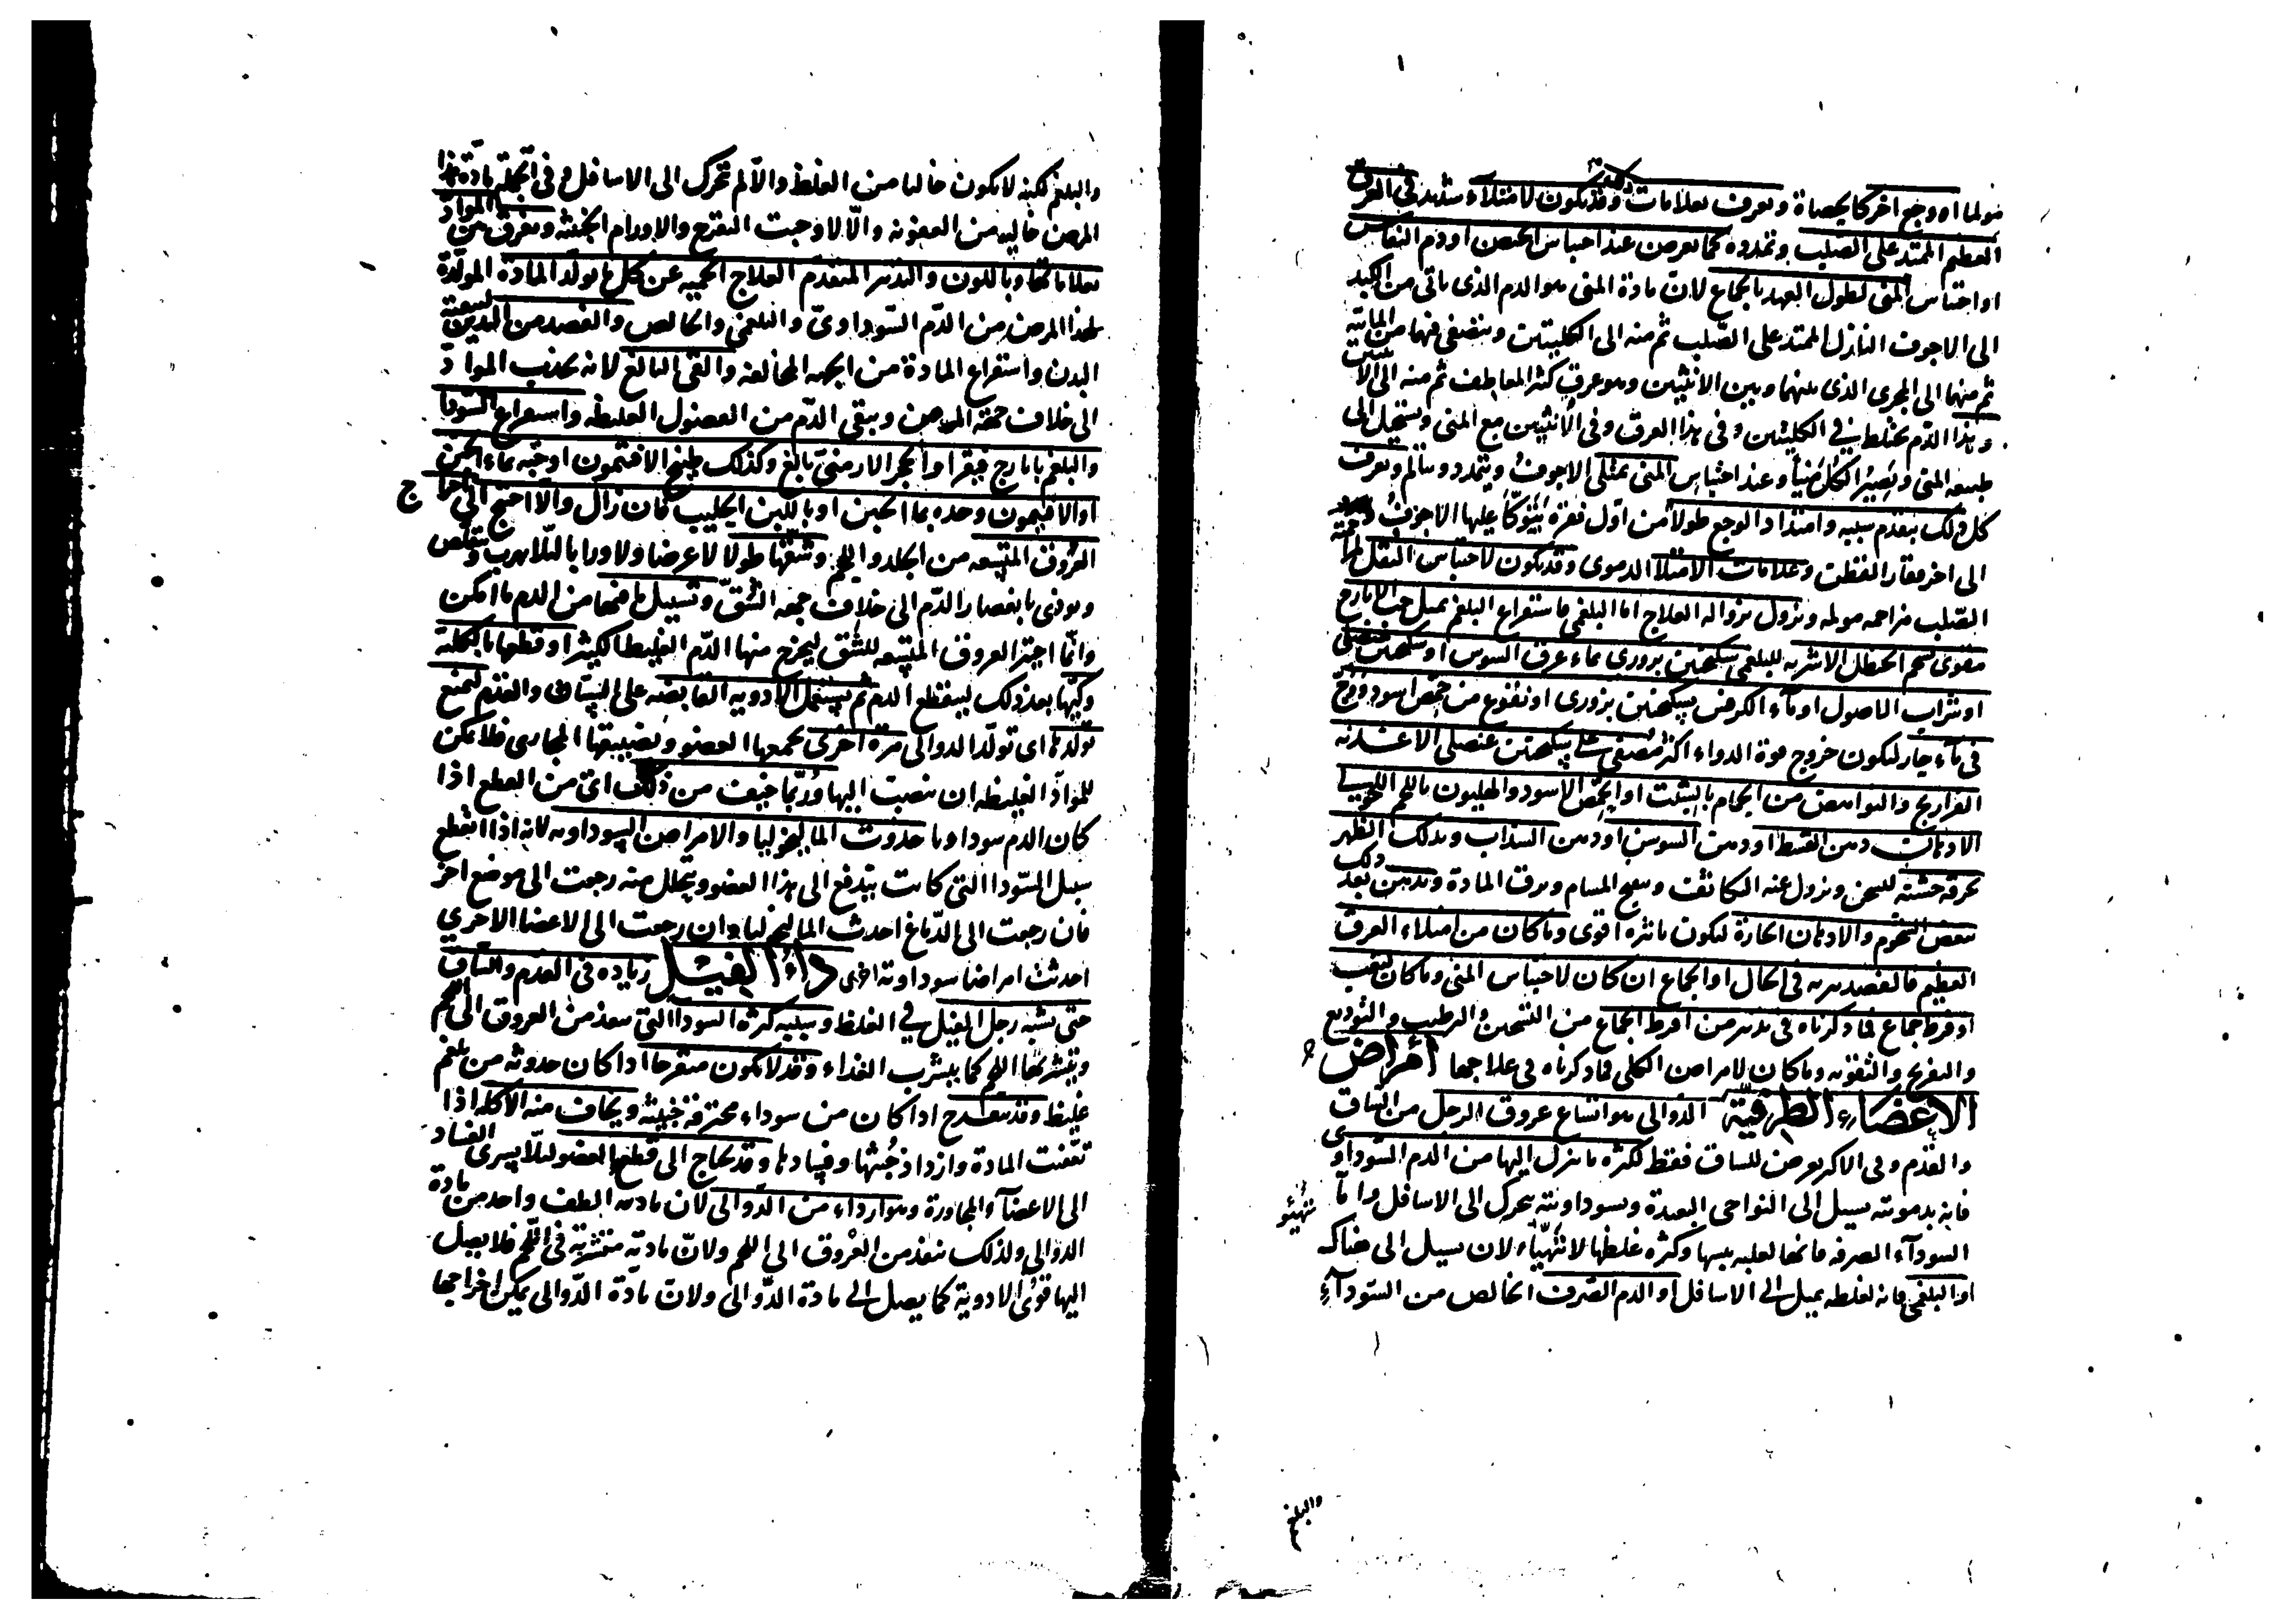 مولما او وجع اخر كالحصاة وتعرف بعلامات وقد يكون لامتلاء شديد في العرق
العظيم الممتد على الصلب وتمدده كما يعرض عند احتباس الحيض او دم النفاس
او احتباس المنى لطول العهد بالجماع لان مادة المنى هو الدم الذى ياتى من الكبد
الى الاجوف النازل الممتد على الصلب ثم منه الى الكليتين ويتصفى فيهما من المائية
ثم منهما الى المجرى الذى بينهما وبين الانثيين وهو عرق كثير المعاطف ثم منه الى الا نثيين
وهذا الدم يختلط في الكليتين وفى هذا العرق وفى الانثيين مع المنى ويستحيل الى
طبيعه المنى ويصير الكل منيا وعند احتباس المنى يمتلى الاجوف ويتمدد ويتالم ويعرف
كل ذلك بتقدم سببه وامتداد الوجع طولا من اول فقرة يتوكأ عليها الاجوف
الى اخر فقار القطن وعلامات الامتلا الدموى وقد يكون لاحتباس الثفل
الصلب مزاحمه مولمه ويزول بزواله العلاج اما البلغمى فاستفراغ البلغم بمثل حب الايارج
مقوى بشحم الحنظل الاشربه للبلغمى سكنجبين بزورى بماء عرق السوس او سكنجبين عنصلى
او شراب الاصول او ماء الكرفس بسكنجبين بزورى او نقوع من حمص اسود
فى ماء حار ليكون خروج قوة الدواء اكثر مصفى على سكنجبين عنصلى الاغذيه
الفراريج والنواهض من الحمام بالشبت او الحمص الاسود والهليون باللحم
الادهان دهن القسط او دهن السوسن او دهن السذاب ويدلك الظهر
بخرقه خشنه لتسخن ويزول عنه التكاثف وتنفتح المسام ويرق المادة ويدهن بعد ذلك
ببعض الشحوم والادهان الحارة ليكون تاثيره اقوى وما كان من امتلاء العرق
العظيم فالفصد يبريه فى الحال او الجماع ان كان لاحتباس المنى وما كان لتعب
او فرط جماع فما ذكرناه فى تدبير من افرط الجماع من التسخين والترطيب والتوديع
والتفريح والتقويه وما كان لامراض الكلى فما ذكرناه فى علاجها أمراض
الاعضاء الطرفية الدوالى هو اتساع عروق الرجل من الساق
والقدم وفى الاكثر يعرض للساق فقط لكثرة ما ينزل اليها من الدم السوداوى
فانه بدمويته يسيل الى النواحى البعيدة وبسوداويته يتحرك الى الاسافل واما
السوداء الصرفه فانها لغلبه يبسها وكثرة غلظها لا تتهيأ لان يسيل الى هناك
او البلغمى فانه لغلظه يميل الى الاسافل او الدم الصرف الخالص من السوداء
والبلغم
والبلغم لكنه لا يكون خاليا من الغلظ والا لم يتحرك الى الاسافل وفى الجملة مادة هذا
المرض خاليه من العفونه والا لاوجبت التقرح والاورام الخبيثه ويعرف من المواد
بعلاماتها وباللون والتدبير المتقدم العلاج الحميه عن كل ما يولد المادة المولدة
لهذا المرض من الدم السوداوى والبلغمى والخالص والفصد من اليدين
البدن واستفراغ المادة من الجهه المخالفه والقى البالغ لانه يجذب المواد
الى خلاف جهة المرض وينقى الدم من الفضول الغليظه واستفراغ السودا
والبلغم بايارج فيقرا او الحجر الارمنى بالغ وكذلك طبخ الافتيمون او حبه بماء الجبن
او الافتيمون وحده بما الجبن او باللبن الحليب فان زال والا احتيج الى اخراج
العروق المتسعه من الجلد واللحم وشقها طولا لا عرضا ولا ورابا لئلا يهرب ويتقلص
ويوذى بانفصار الدم الى خلاف جهه الشق وتسييل ما فيها من الدم ما امكن
وانما اختير العروق المتسعه للشق ليخرج منها الدم الغليظ الكثير او قطعها بالكلية
وكيها بعد ذلك لينقطع الدم ثم يستعمل الادويه القابضه على الساق والقدم لتمنع
تولدها اى تولد الدوالى مرة اخرى بجمعها العضو وتضييقها المجارى فلا يمكن
للمواد الغليظه ان تنصب اليها وربما خيف من ذلك اى من القطع اذا
كان الدم سوداويا حدوث الماليخوليا والامراض السوداويه لانه اذا انقطع
سبيل السودا التى كانت يندفع الى هذا العضو ويتحلل منه رجعت الى موضع اخر
فان رجعت الى الدماغ احدث الماليخوليا وان رجعت الى الاعضا الاخرى
احدثت امراضا سوداوية اخرى داء الفيل زياده فى القدم والساق
حتى يشبه رجل الفيل في الغلظ وسببه كثرة السودا التى ينفذ من العروق الى اللحم
ويتشربها اللحم كما يتشرب الغذاء وقد لا يكون متقرحا اذا كان حدوثه من بلغم
غليظ وقد يتقرح اذا كان من سوداء محترقة خبيثه ويخاف منه الاكله اذا
تعفنت المادة وازداد خبثها وفسادها وقد يحتاج الى قطع العضو لئلا يسرى الفساد
الى الاعضاء المجاورة وهو ارداء من الدوالى لان مادته الطف واحد من مادة
الدوالى ولذلك ينفذ من العروق الى اللحم ولان مادته منتشرة فى اللحم فلا يصل
اليها قوى الادوية كما يصل الى مادة الدوالى ولان مادة الدوالى يمكن اخراجها